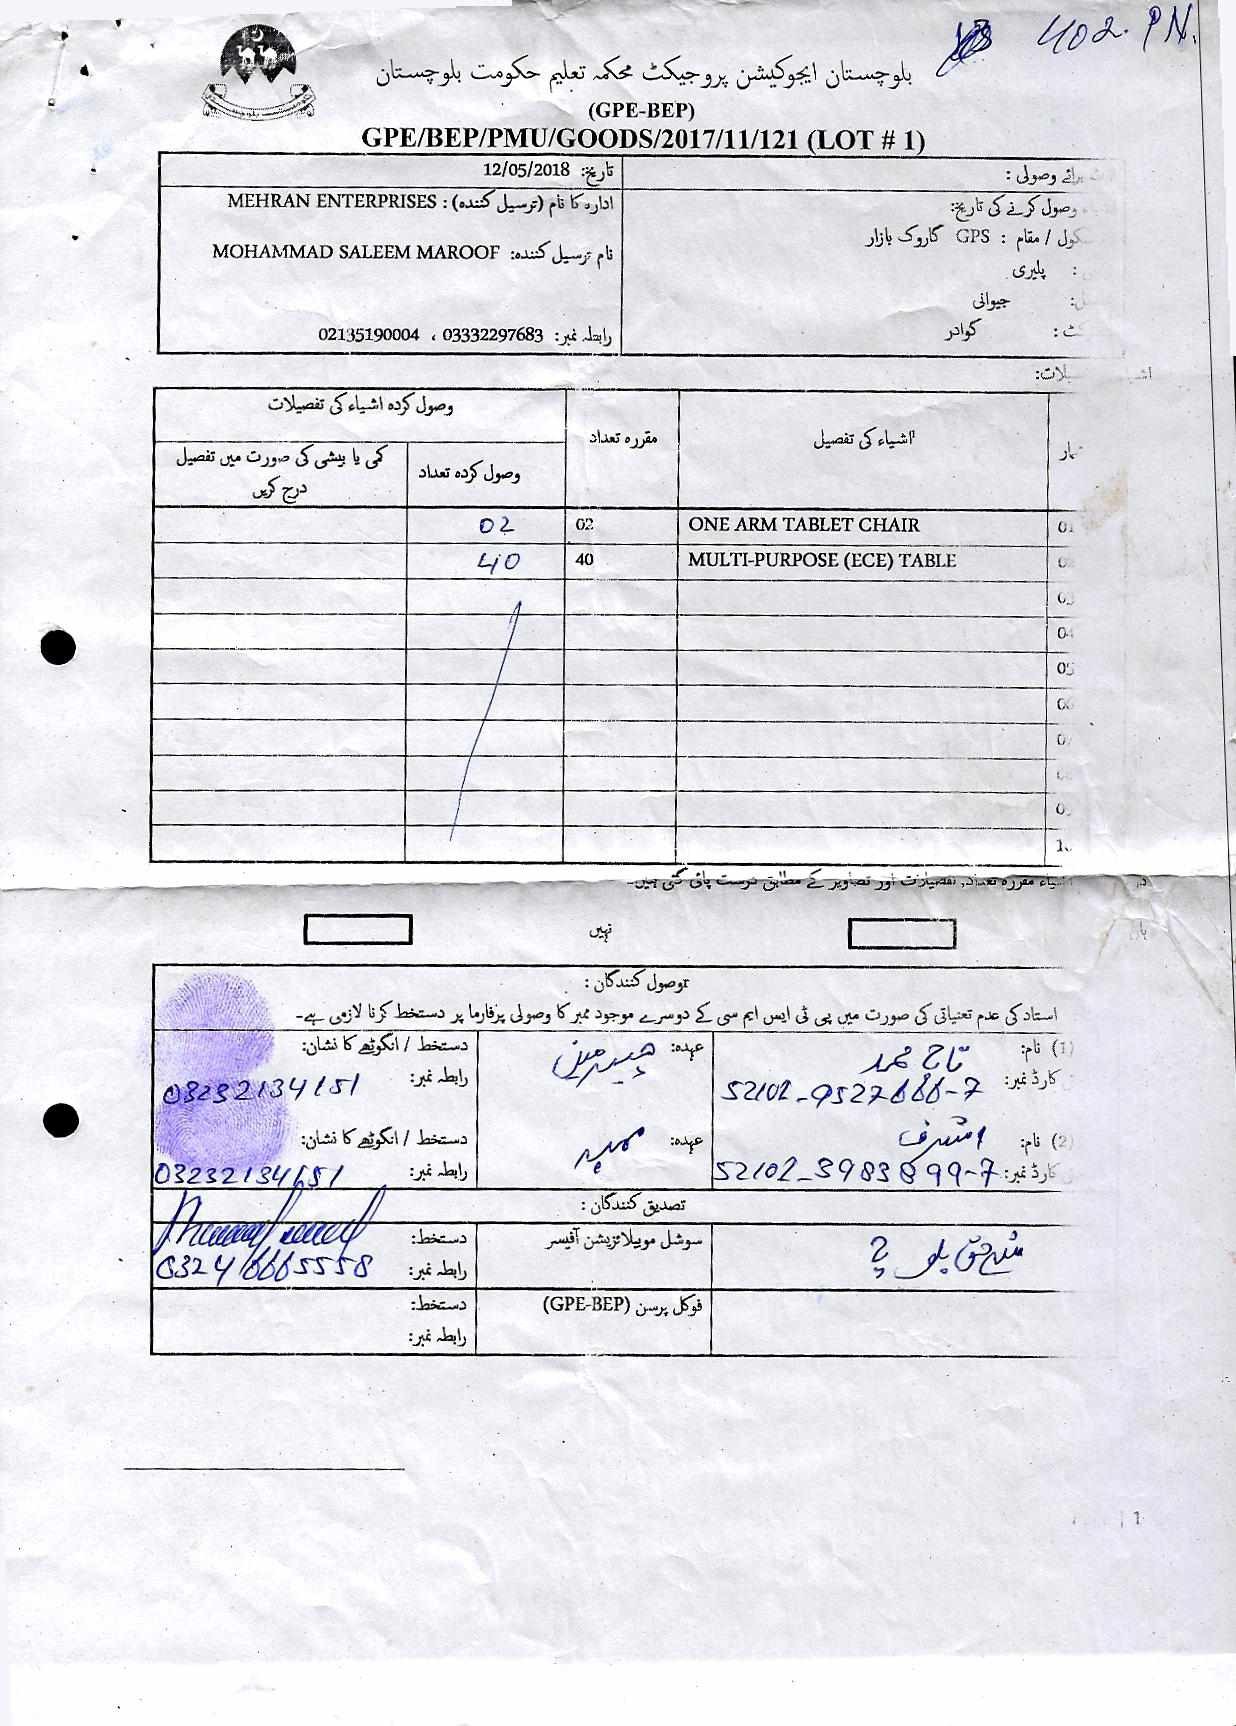 402. P.N.
بلوچستان ایجوکیشن پروجیکٹ محکمہ تعلیم حکومت بلوچستان
(GPE-BEP)
GPE/BEP/PMU/GOODS/2017/11/121 (LOT # 1)
برائے وصولی :
تاریخ: 12/05/2018
وصول کرنے کی تاریخ:
ادارہ کا نام (ترسیل کنندہ) : MEHRAN ENTERPRISES
کول / مقام : GPS گاروک بازار
نام ترسیل کنندہ: MOHAMMAD SALEEM MAROOF
: پلیری
: جیوانی
کٹ : گوادر
رابطہ نمبر: 03332297683 ، 02135190004
یلات:
اشیاء کی تفصیل
مقررہ تعداد
وصول کردہ اشیاء کی تفصیلات
وصول کردہ تعداد
کمی یا بیشی کی صورت میں تفصیل درج کریں
01 ONE ARM TABLET CHAIR 02 02
02 MULTI-PURPOSE (ECE) TABLE 40 40
03
04
05
06
07
08
09
10
اشیاء مقررہ تعداد, تفصیلات اور تصاویر کے مطابق درست پائی گئی ہیں۔
ہاں
نہیں
وصول کنندگان :
استاد کی عدم تعنیاتی کی صورت میں پی ٹی ایس ایم سی کے دوسرے موجود ممبر کا وصولی پرفارما پر دستخط کرنا لازمی ہے۔
(1) نام: تاج محمد
عہدہ: چیئرمین
دستخط / انگوٹھے کا نشان:
کارڈ نمبر: 52102-9527666-7
رابطہ نمبر: 03232134151
(2) نام: اشرف
عہدہ: ممبر
دستخط / انگوٹھے کا نشان:
کارڈ نمبر: 52102-3983899-7
رابطہ نمبر: 03232134151
تصدیق کنندگان :
بلوچ
سوشل موبیلائزیشن آفیسر
دستخط:
رابطہ نمبر:
فوکل پرسن (GPE-BEP)
دستخط:
رابطہ نمبر:
| 1